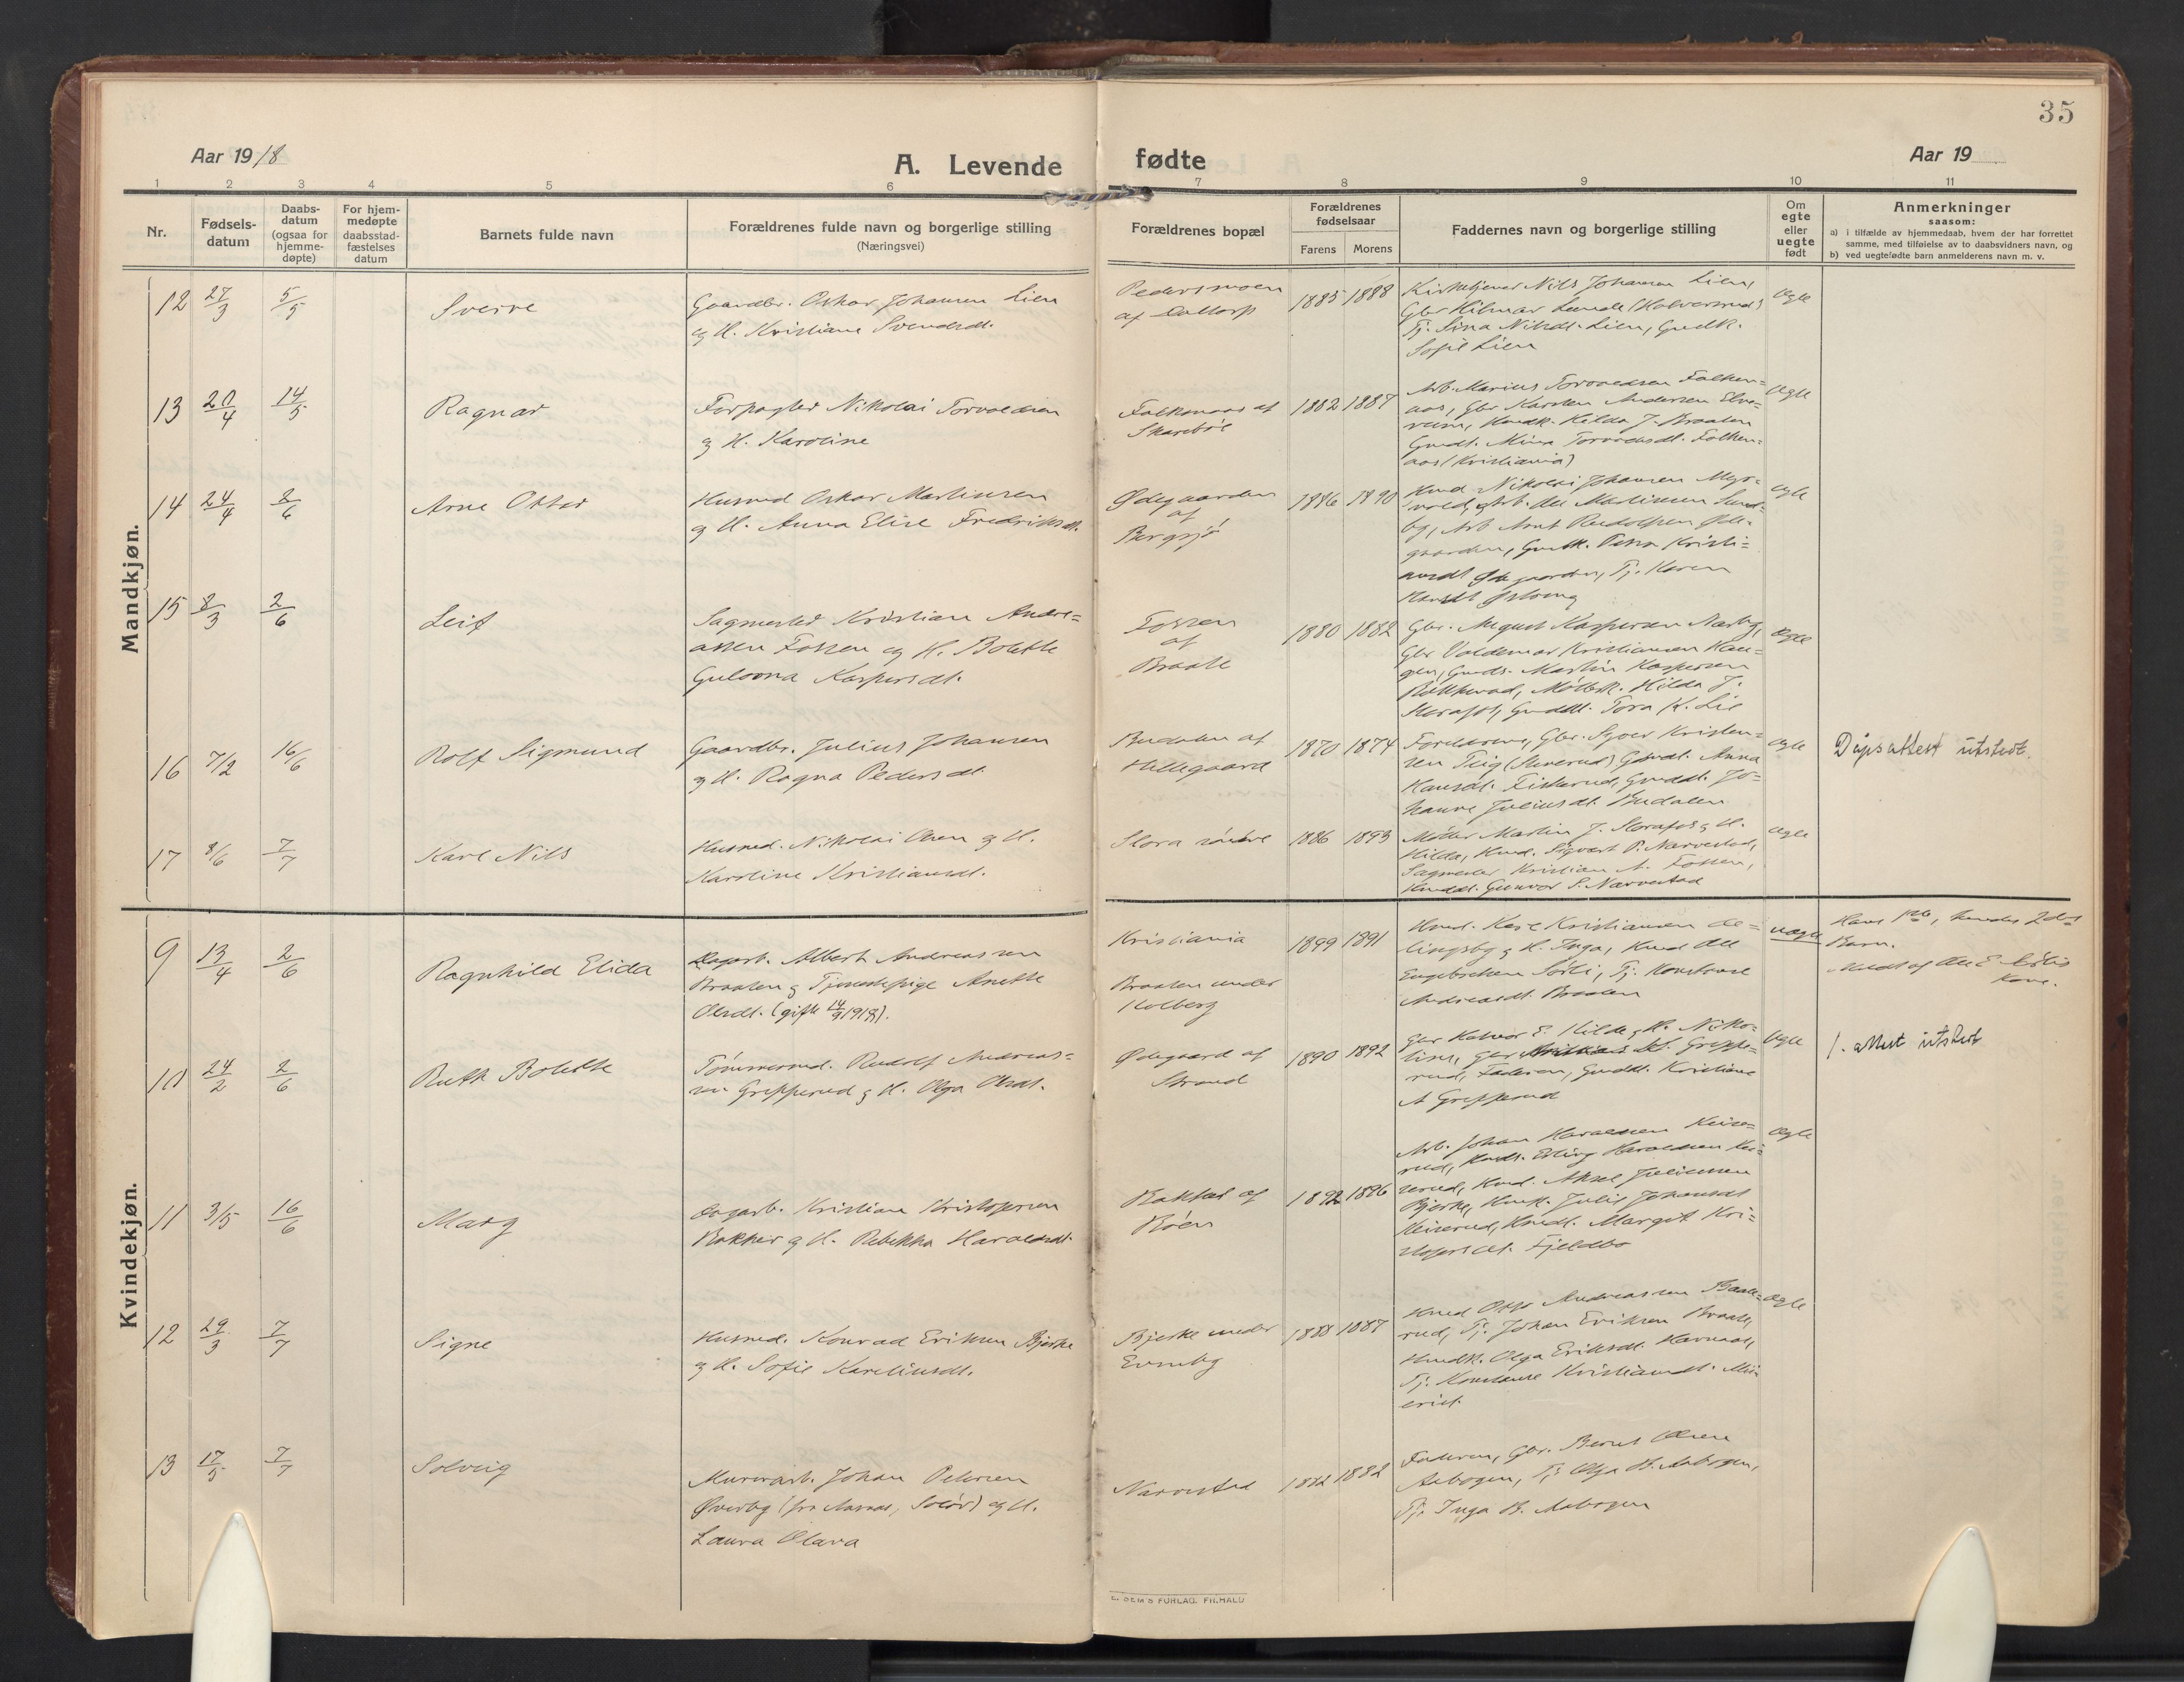 35
Aar 1918
A. Levende fødte
Aar 19
1 2 3 4 5 6 7 8 9 10 11
Nr.
Fødsels-
datum
Daabs-
datum
(ogsaa for
hjemme-
døpte)
For hjem-
medøpte
daabsstad-
fæstelses
datum
Barnets fulde navn
Forældrenes fulde navn og borgerlige stilling
(Næringsvei)
Forældrenes bopæl
Forældrenes
fødselsaar
Farens Morens
Faddernes navn og borgerlige stilling
Om
egte
eller
uegte
født
Anmerkninger
saasom:
a) i tilfælde av hjemmedaab, hvem der har forrettet
samme, med tilføielse av to daabsvidners navn, og
b) ved uegtefødte barn anmelderens navn m. v.
Mandkjøn.
12 27/3 5/5 Sverre
Gaardbr. Oskar Johansen Lien
og H. Kristiane Svendsdt.
Pedersmoen
af
1885 1888
Kirketjener Nils Johansen Lien,
Gbr Hilmar
Tj. Lina Nilsdt. Lien, Gmdk.
Sofie Lien
egte
13 20/4 14/5 Ragnar
Forpagter Nikolai Torvaldsen
og H. Karoline
Falkenaas af
Skarebøl
1882 1887
Arb. Marius Torvaldsen Falken=
aas, Gbr Karsten Andersen Elve=
rum, Hmdk. Hilda J. Braaten
Gmdt. Minra Torvaldsdt. Falken=
aas (Kristiania)
egte
14 24/4 2/6 Arne Otter
Husmd Oskar Martinsen
og H. Anna Elise Fredriksdt.
Ødegaarden
af
Bergsjø
1886 1890
Hmd Nikolai Johansen Myr=
vold, Arb. Martinsen Sund=
by, Arb Arnt Rudolfsen Øde=
gaarden, Gmdk. Petra Kristi=
ansdt Ødegaarden, Tj. Karen
egte
15 8/3 2/6 Leif
Sagmester Kristian Andre=
assen Fossen og H. Bolette
Gulovna Kaspersdt.
Fossen
af
Braate
1880 1882
Gbr. August Kaspersen Næsby,
Gbr Valdemar Kristiansen Hau=
gen, Gmds. Martin Kaspersen
Møllersk. Hilda J.
Storafos, Gmddt. Tora K. Lie
egte
16 7/2 16/6 Rolf Sigmund
Gaardbr. Julius Johansen
og H. Ragna Pedersdt.
Budalen af
Hillegaard
1870 1874
Forældrene, Gbr. Syver Kristen=
sen Teig Gmdt. Anna
Hansdt. Fiskerud, Gmddt. Jo=
hanne Juliusdt. Budalen
egte
Dåpsattest utstedt.
17 8/6 7/7 Karl Nils
Husmd. Nikolai Olsen og H.
Karoline Kristiansdt.
Stora søndre
1886 1893
Møller Martin J. Storafos og H.
Hilda, Hmd. Sigvart P. Narvestad,
Sagmester Kristian A. Fossen,
Hmddt. Gunvor S. Narvestad
egte
Kvindekjøn.
9 13/4 2/6 Ragnhild Elida
Dagarb. Albert Andreassen
Braaten og Tjenestepige Anette
Olsdt. (gift 14/9 1918).
Kristiania
Braaten under
Kolberg
1899 1891
Hmd. Karl Kristiansen El=
lingsby og H. Inga, Hmd Ole
Engebretsen Sørli, Tj. Konstanse
Andreasdt. Braaten
uegte
Hans 1ste, hendes 2det
Barn.
Meldt af Ole E. Sørlis
Kone.
10 24/2 2/6 Ruth Bolette
Tømmermd. Rudolf Andreas=
sen Grepperud og H. Olga Olsdt.
Ødegaard af
Strand
1890 1892
Gbr Halvor E. Kilde og H. Niko=
line, Gbr Greppe=
rud, Faderen, Gmddt. Kristiane
A Grepperud
egte
1. attest utstedt
11 3/5 16/6 Mary
Dagarb. Kristian Kristopersen
Bakker og H. Rebekka Haraldsdt.
Bakker af
Røen
1892 1896
Arb. Johan Haraldsen Keise=
rud, Hmds. Erling Haraldsen Kei=
serud, Hmd. Aksel Juliussen
Bjerke, Hmdk. Julie Johansdt
Keiserud, Hmdt. Margit Kri=
stopersdt. Fjeldbo
egte
12 29/3 7/7 Signe
Husmd. Konrad Eriksen Bjerke
og H. Sofie Kareliusdt.
Bjerke under
Evenby
1888 1887
Hmd Otto Andreassen Baale=
rud, Tj. Johan Eriksen Braate,
Hmdk. Olga Eriksdt. Havnaas,
Tj. Konstanse Kristiansdt.
egte
13 17/5 7/7 Solveig
Murerarb. Johan Petersen
Øverby (fra Aasnes, Solør) og H.
Laura Olava
Narvestad
1882 1882
Faderen, Gbr. Bernt Olsen
Aabogen, Tj. Olga B. Aabogen,
Tj. Inga B. Aabogen
E. SEM'S FORLAG. FR.HALD